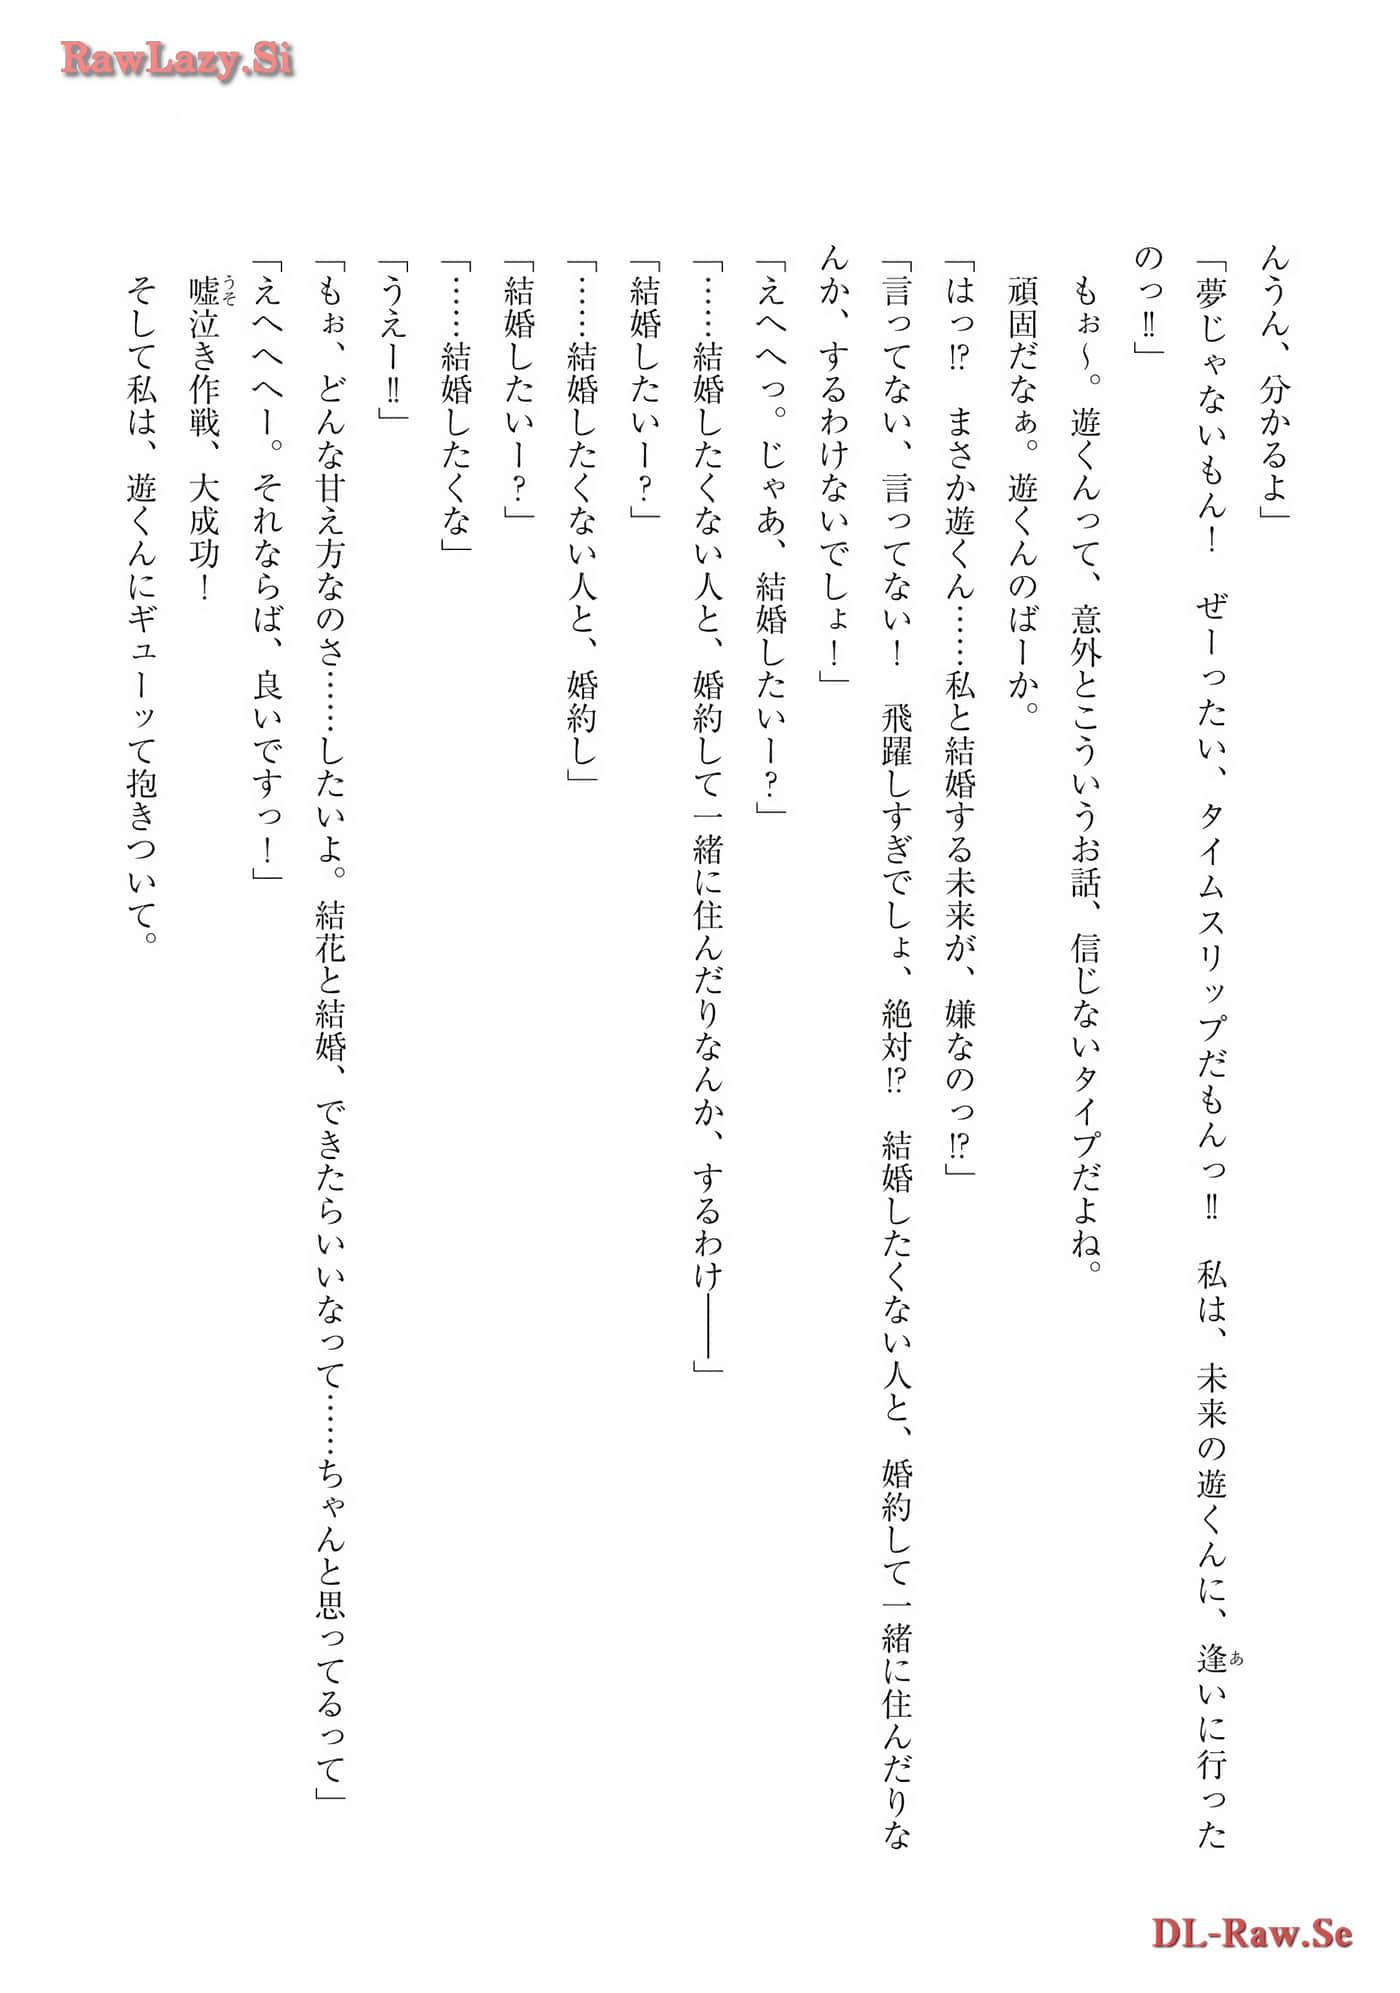 RawLazy.Si
んうん、分かるよ」
「夢じゃないもん！　ぜーったい、タイムスリップだもんっ‼　私は、未来の遊くんに、逢いに行った
あ
のっ‼」
もぉ～。遊くんって、意外とこういうお話、信じないタイプだよね。
頑固だなぁ。遊くんのばーか。
「はっ⁉　まさか遊くん……私と結婚する未来が、嫌なのっ⁉」
「言ってない、言ってない！　飛躍しすぎでしょ、絶対⁉　結婚したくない人と、婚約して一緒に住んだりな
んか、するわけないでしょ！」
「えへへっ。じゃあ、結婚したいー？」
「……結婚したくない人と、婚約して一緒に住んだりなんか、するわけ――」
「結婚したいー？」
「……結婚したくない人と、婚約し」
「結婚したいー？」
「……結婚したくな」
「うえー‼」
「もぉ、どんな甘え方なのさ……したいよ。結花と結婚、できたらいいなって……ちゃんと思ってるって」
「えへへへー。それならば、良いですっ！」
嘘泣き作戦、大成功！
うそ
そして私は、遊くんにギューッて抱きついて。
DL-Raw.Se